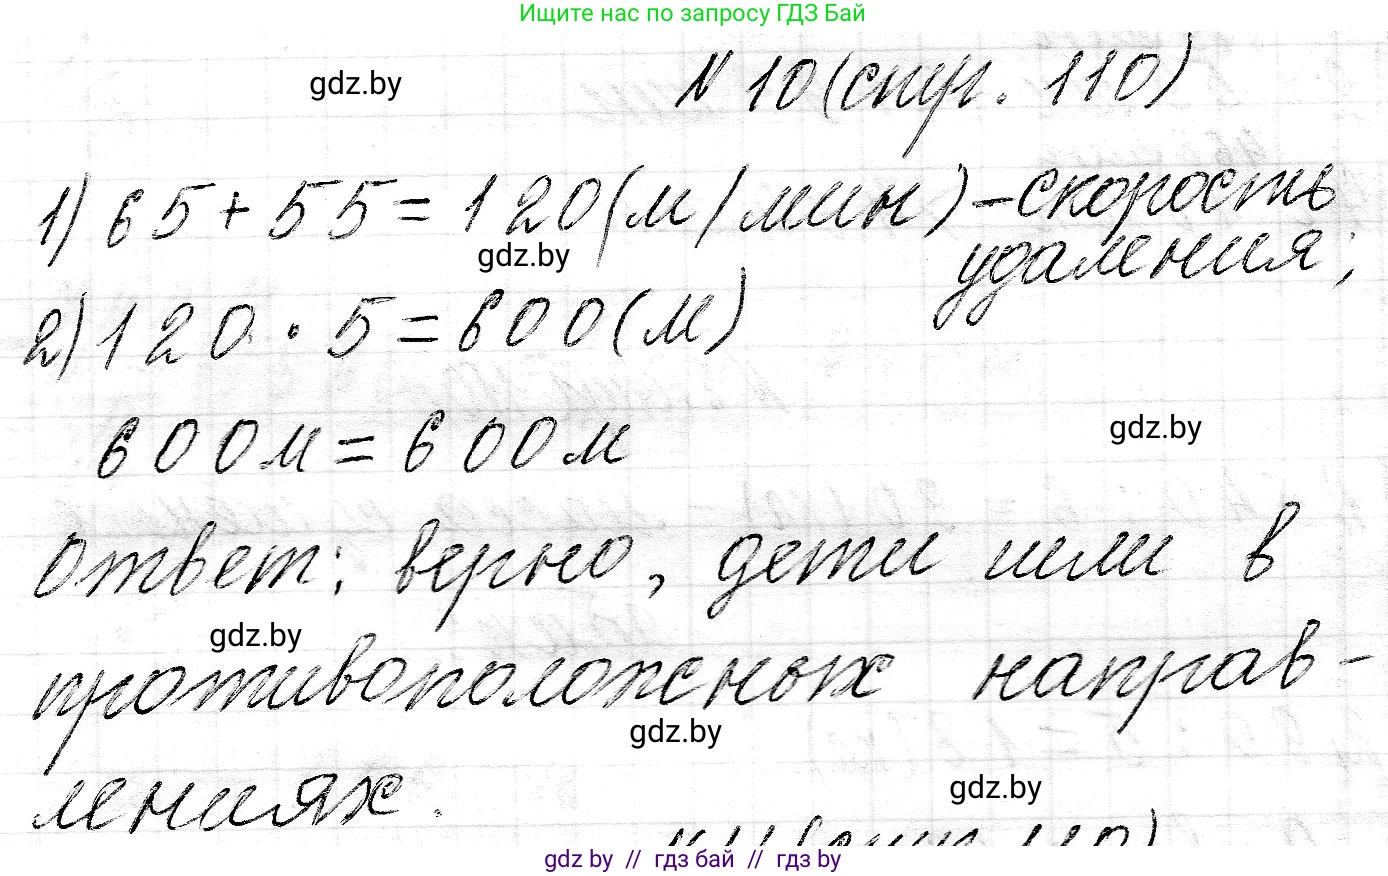 Ищите нас по запросу ГДЗ Бай
gdz.by
N 10 (стр. 110)
1) 65 + 55 = 120 (м/мин) - скорость
удаления;
gdz.by
2) 120 · 5 = 600 (м)
600 м = 600 м
gdz.by
Ответ: верно, дети шли в
gdz.by
противоположных направ-
gdz.by
лениях.
gdz.by
N 11 (стр. 110)
gdz by // гдз бай // гдз by